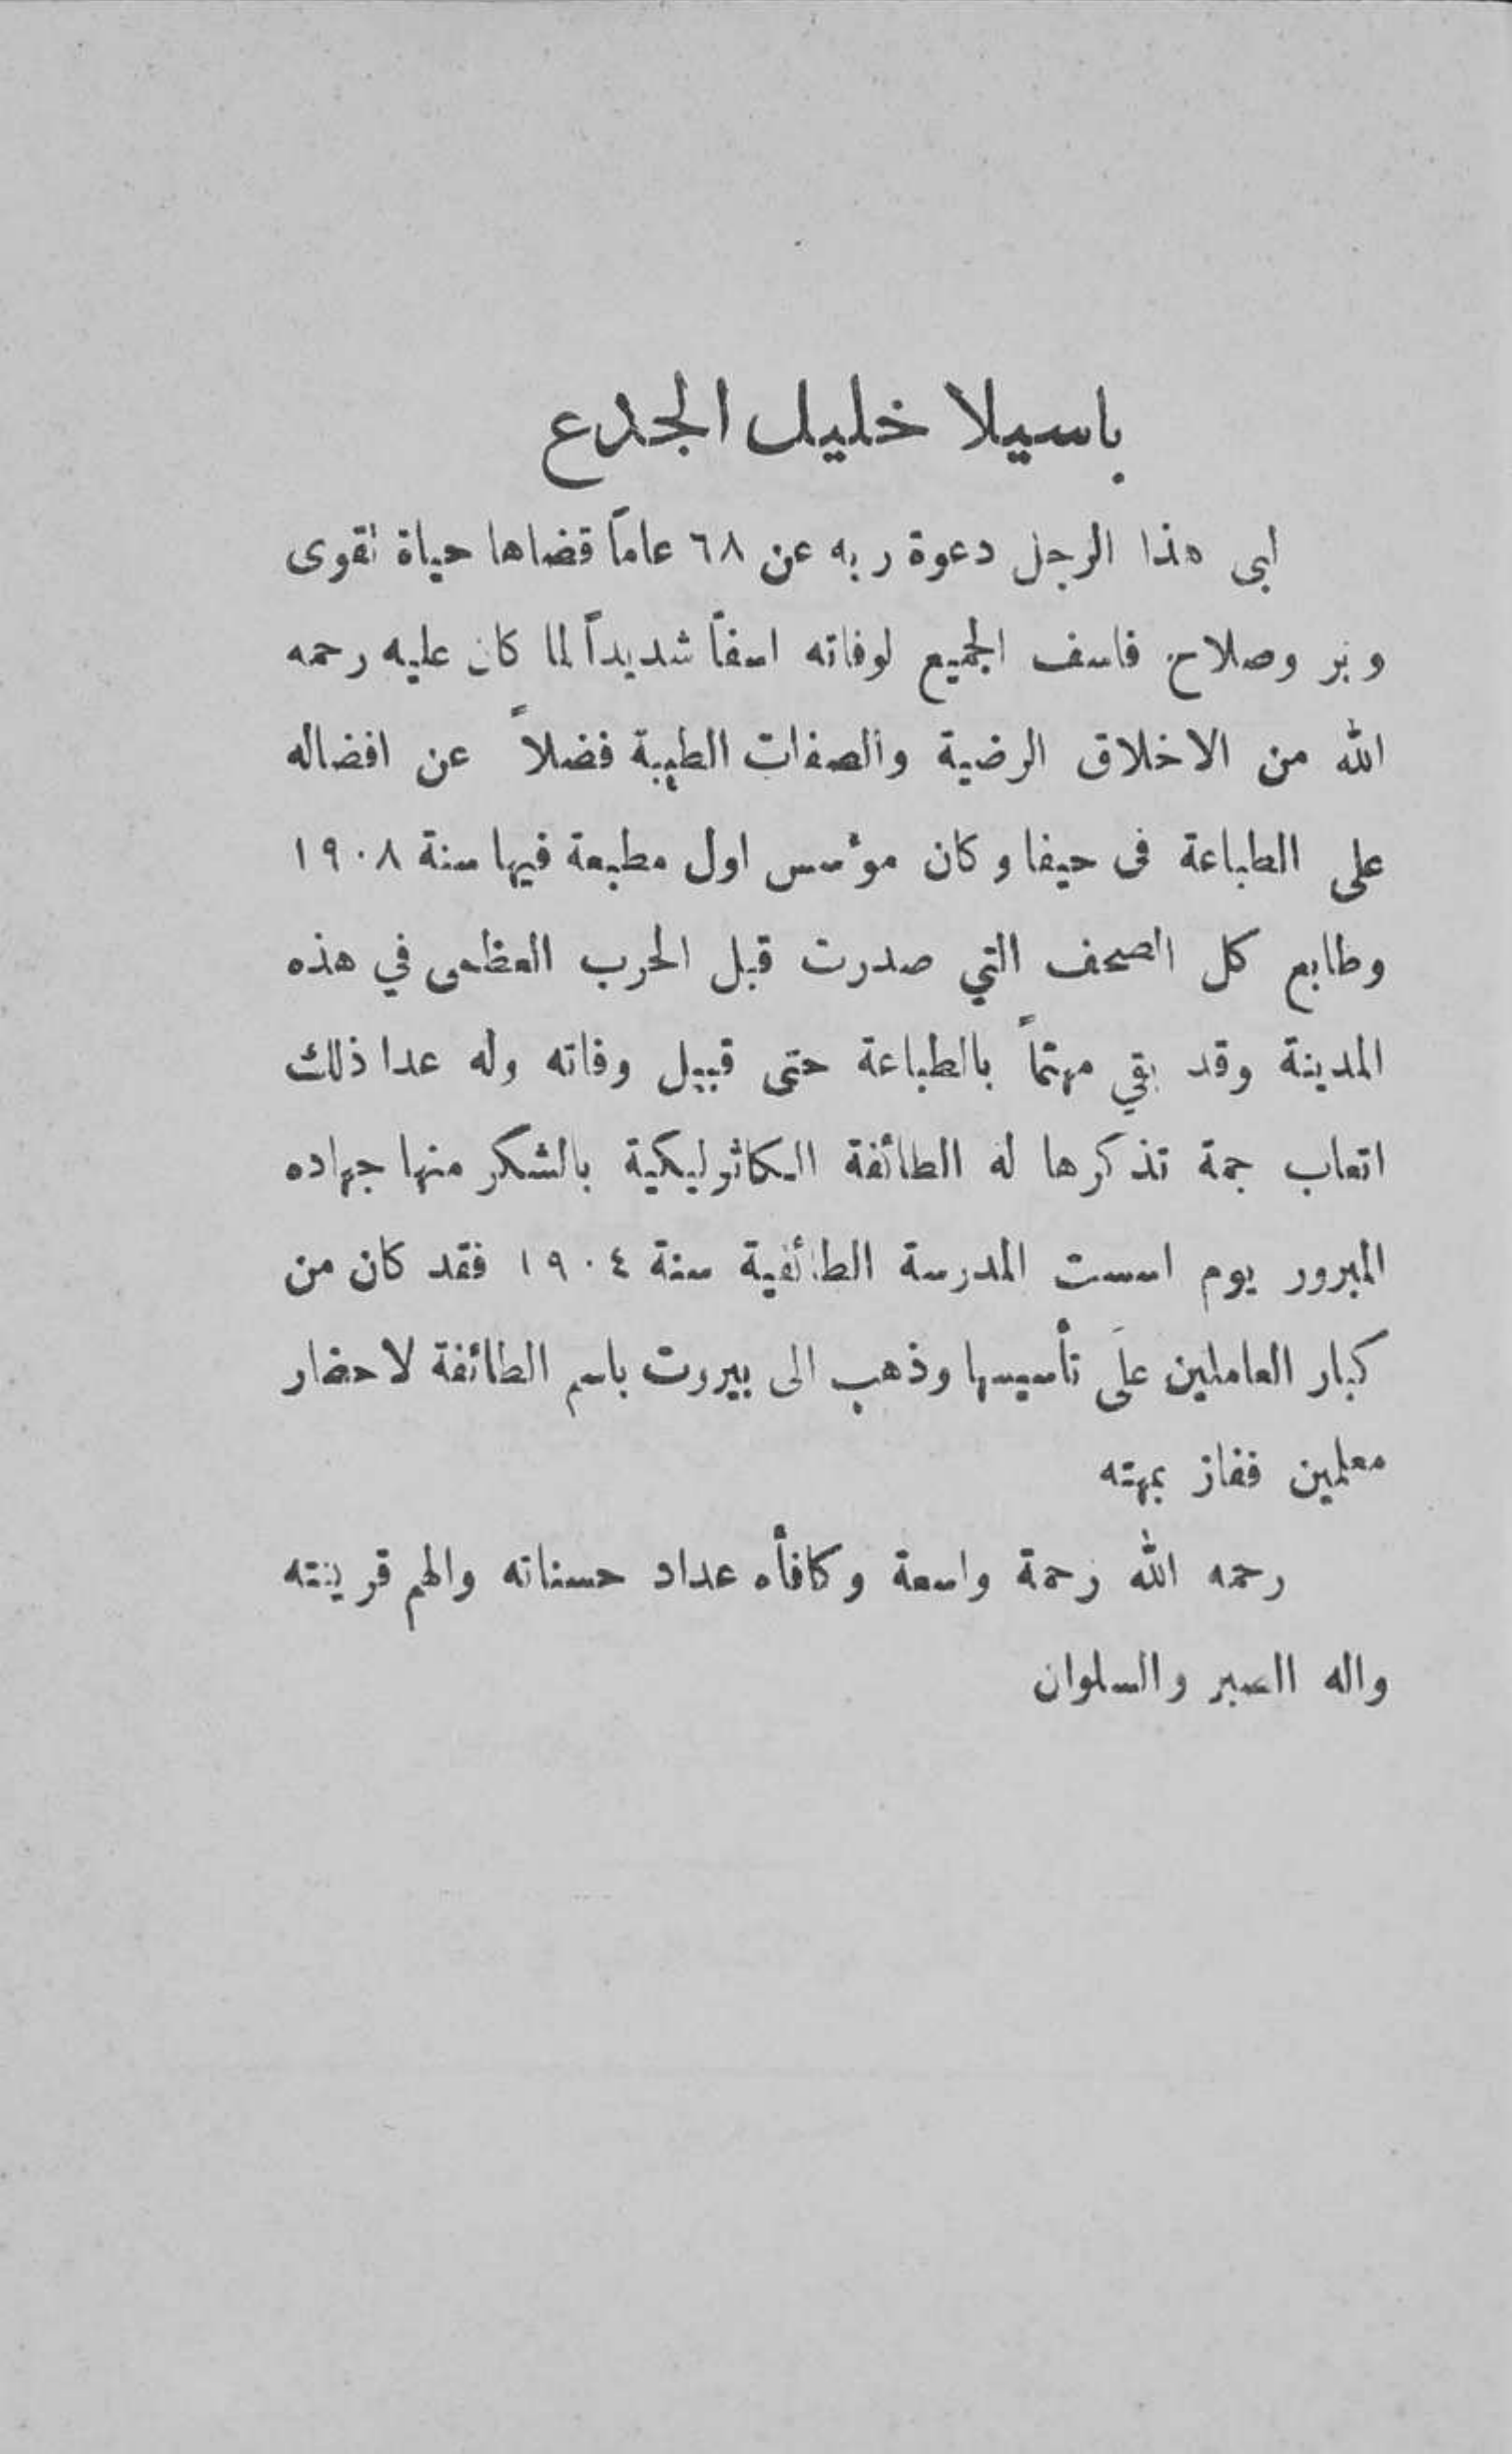 باسيلا خليل الجدع
لبى هذا الرجل دعوة ربه عن ٦٨ عاماً قضاها حياة تقوى
وبر وصلاح فاسف الجميع لوفاته اسفاً شديداً لما كان عليه رحمه
الله من الاخلاق الرضية والصفات الطيبة فضلاً عن افضاله
على الطباعة فى حيفا وكان مؤسس اول مطبعة فيها سنة ١٩٠٨
وطابع كل الصحف التي صدرت قبل الحرب العظمى في هذه
المدينة وقد بقي مهتماً بالطباعة حتى قبيل وفاته وله عدا ذلك
اتعاب جمة تذكرها له الطائفة الكاثوليكية بالشكر منها جهاده
المبرور يوم اسست المدرسة الطائفية سنة ١٩٠٤ فقد كان من
كبار العاملين علَى تأسيسها وذهب الى بيروت باسم الطائفة لاحضار
معلمين ففاز بمهمته
رحمه الله رحمة واسعة وكافأه عداد حسناته والهم قرينته
واله الصبر والسلوان